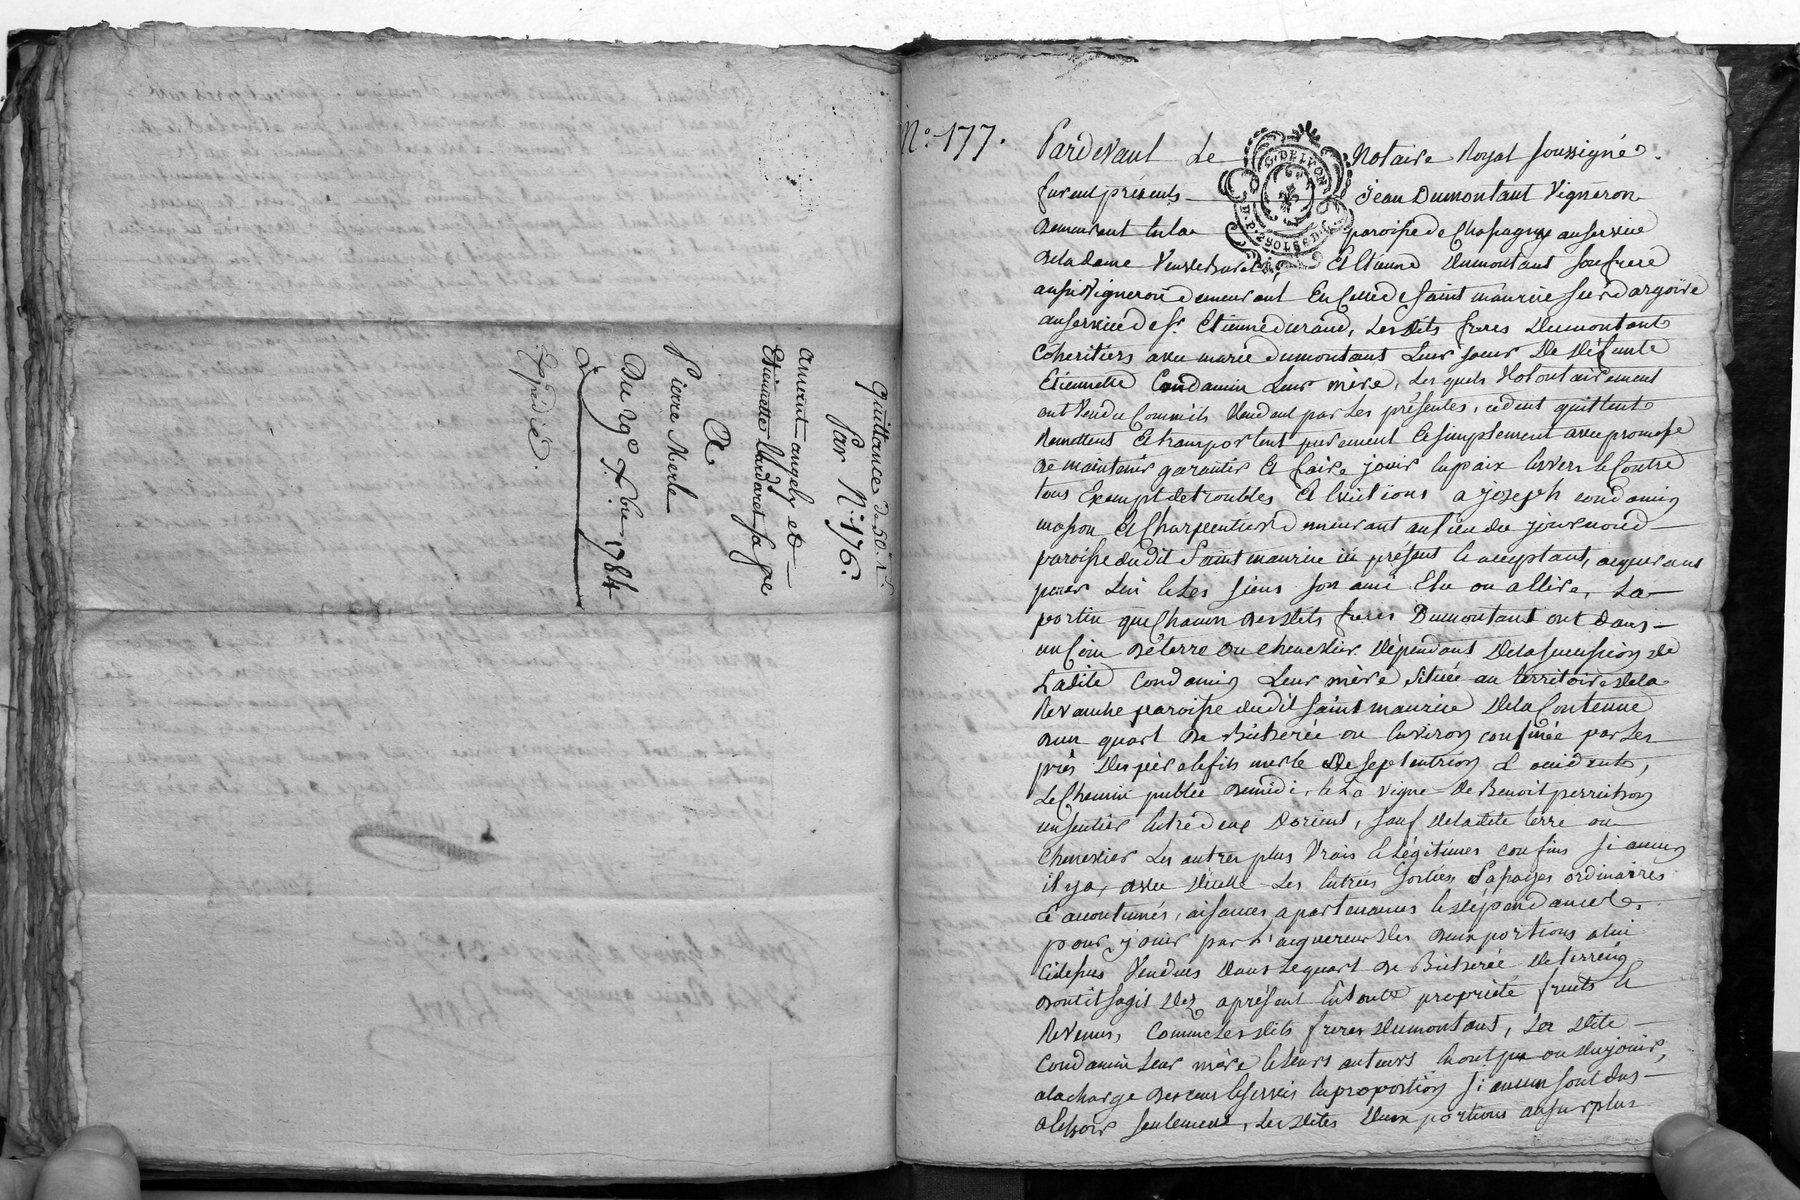 Quittance de 50.₶
Par N.° 176.
Ameraut angely et
Etiennette Vardaret sa fe
A
Pierre Merle
Du 29e Xbre 1784
Expedié.
N.° 177.
G. DE LYON
Pardevant Le Notaire Royal soussigné.
furent présents Jean Dumontant Vigneron
demeurant en la paroisse de Chapagny au service
de la dame Veuve Et Etienne Dumontant son frere
aussi Vigneron demeurant En Celle de Saint maurice sur dargoire
au service de Sr. Etienne durand, Lesdits freres Dumontant
Coheritiers avec marie dumontant Leur soeur De Défunte
Etiennette Condamin Leur mère, Lesquels Volontairement
ont Vendu Comme ils Vendent par Les présentes, cedent quittent
Remettent Et transportent purement Et simplement avec promesse
de maintenir garantir Et faire jouir en paix Envers Et Contre
tous Exempt de troubles Et Evictions a joseph condamin
masson Et Charpentier demeurant au lieu du journoud
paroisse dudit Saint maurice ici présent Et acceptant, acquerant
pour Lui Et Les siens son ami Elu ou a Elire, La
portion que Chacun desdits freres Dumontant ont dans
un Coin de terre ou chenevier Dépendant De la succession de
Ladite Condamin Leur mère, Située au territoire de la
Revanche paroisse dudit Saint maurice De la Contenue
d'un quart de Bicherée ou Environ confinée par Les
près des père et fils merle De septentrion & occident,
Le Chemin publics de midi, Et La vigne de Benoit perrichon
un sentier Entre deux D'orient, sauf de ladite terre ou
Chenevier Les autres plus Vrais Et Légitimes confins si aucuns
il y a, avec d'icelle Les Entrées sorties Passages ordinaires
Et accoutumés, aisances, apartenances Et dépendances.
pour jouir par L'acquereur des deux portions a lui
Cidessus Vendues Dans Le quart de Bicherée De terrein
dont il sagit Dez apresent En toute propriété fruits Et
Revenus, Comme Lesdits freres Dumontant, La dite
Condamin Leur mère Et Leurs auteurs En ont pu ou du jouir,
a la charge des cens Et servis En proportion si aucun sont dus
a Echoir seulement, Lesdites Deux portions au surplus